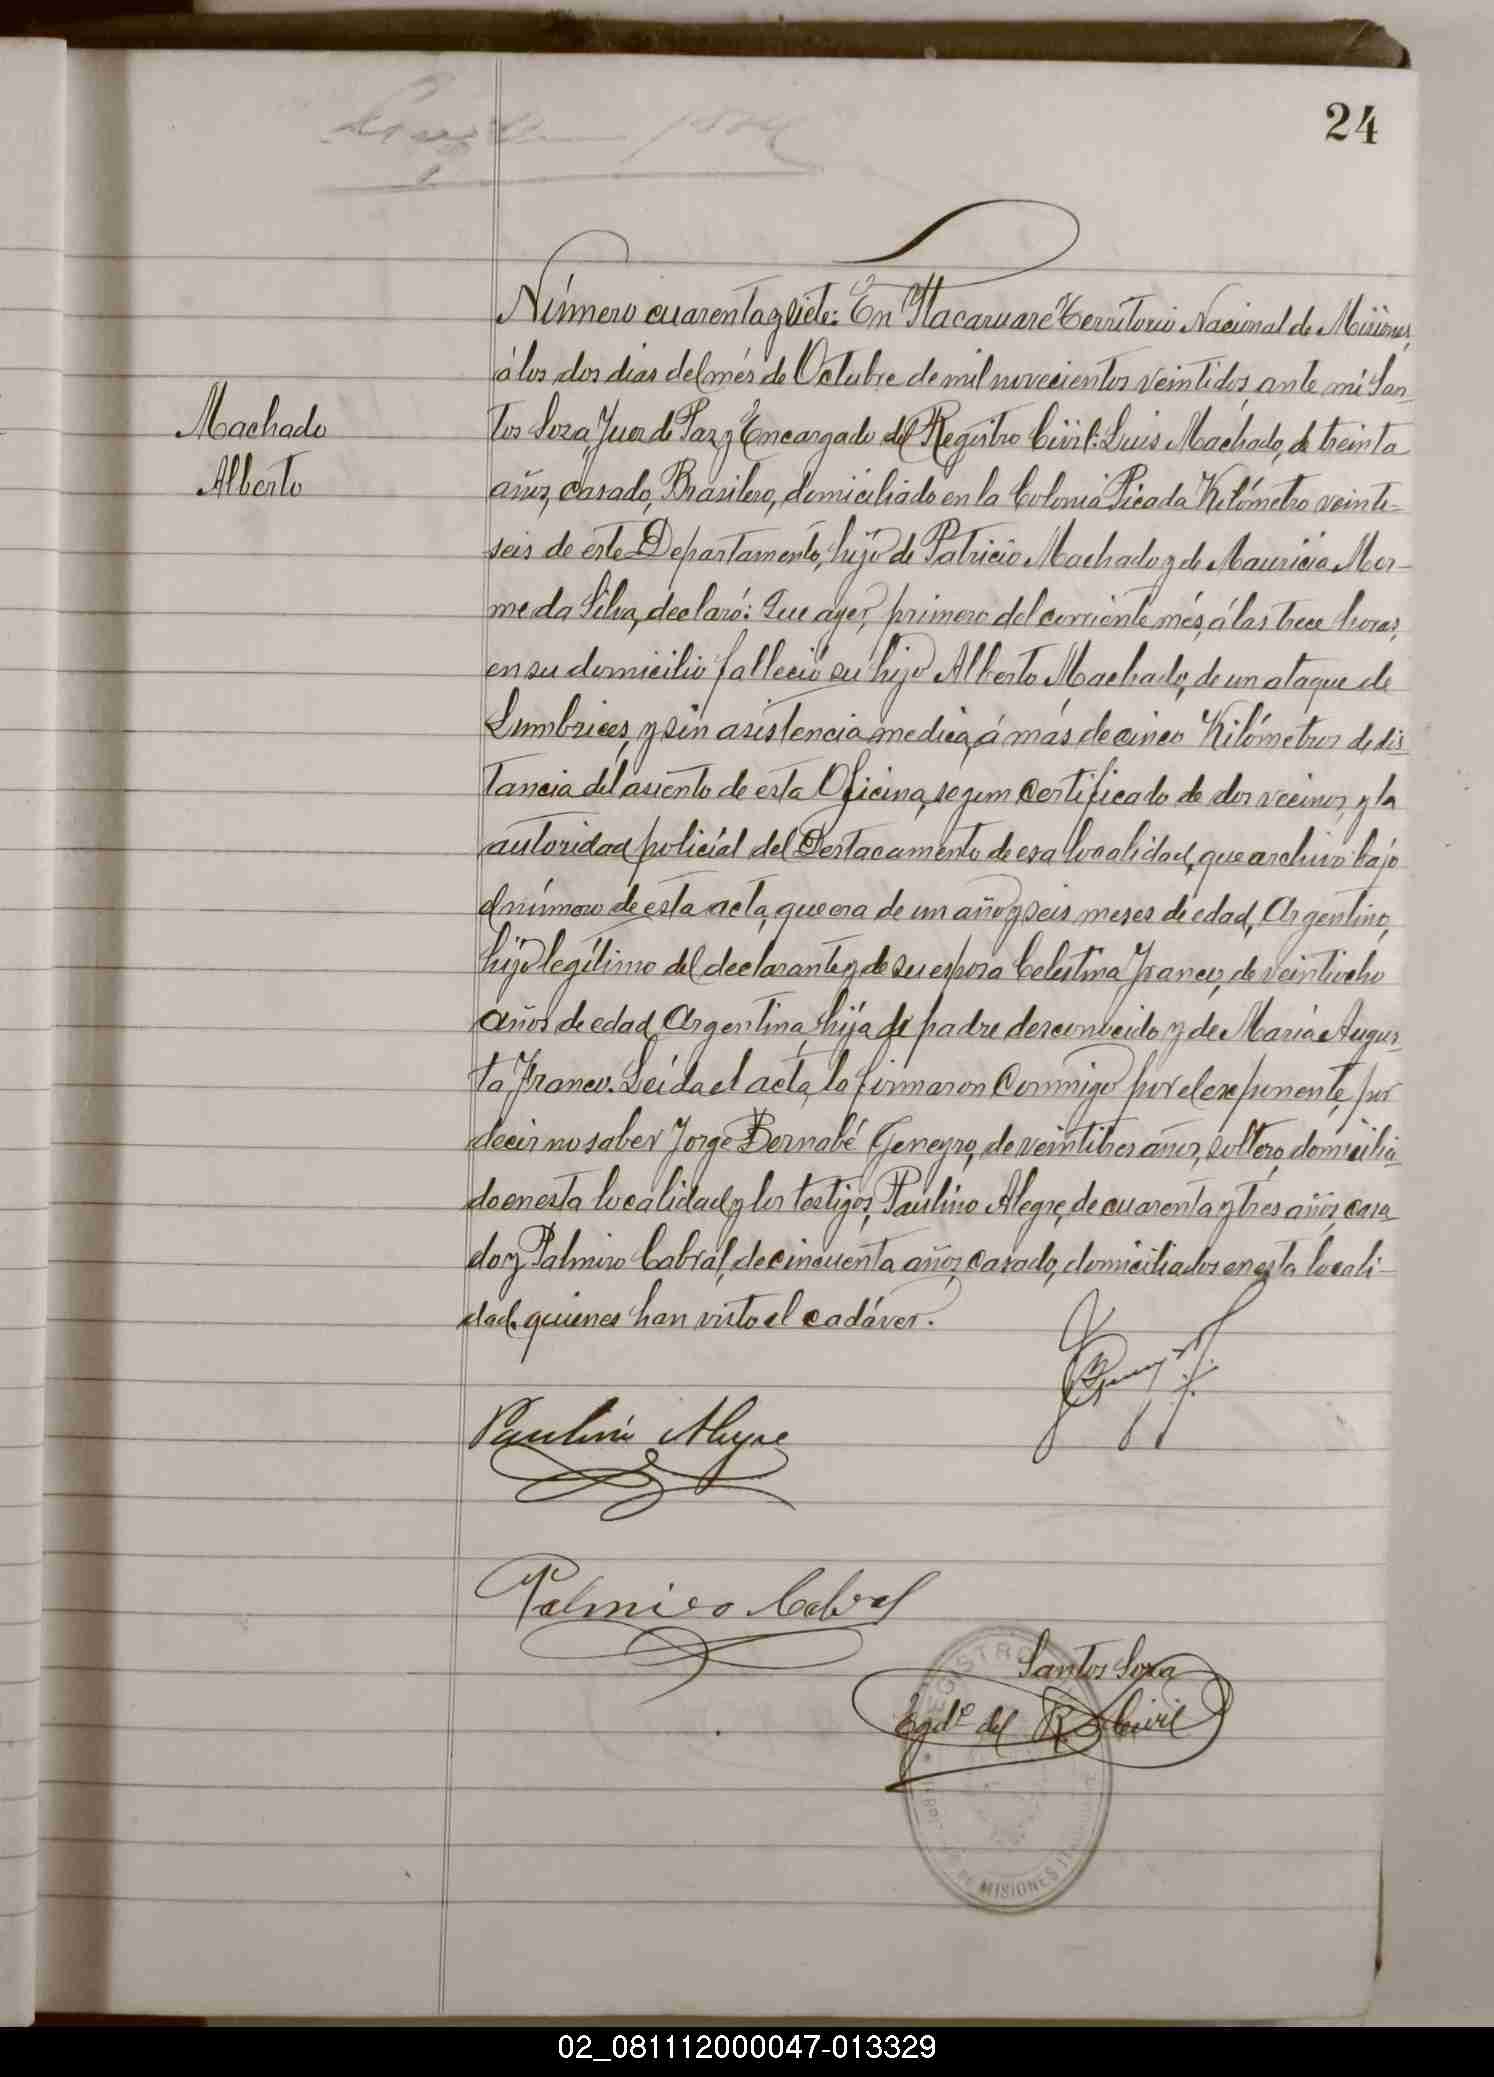 24
Número cuarenta y siete: En Itacaruaré Territorio Nacional de Misiones,
á los dos dias del més de Octubre de mil novecientos veintidos, ante mí San-
Machado
tos Soza, Juez de Paz y Encargado del Registro Civil: Luis Machado, de treinta
Alberto
años, casado, Brasilero, domiciliado en la Colonia Picada Kilómetro veinte-
seis de este Departamento, hijo de Patricio Machado y de Mauricia Mer-
me da Silva, declaró: Que ayer, primero del corriente més, á las trece horas,
en su domicilio falleció su hijo Alberto Machado, de un ataque de
Lumbrices, y sin asistencia medica, á más de cinco Kilómetros de dis-
tancia del asiento de esta Oficina, segun certificado de dos vecinos, y la
autoridad policial del Destacamento de esa localidad, que archivo bajo
el número de esta acta, que era de un año y seis meses de edad, Argentino,
hijo legítimo del declarante y de su esposa Celestina Franco, de veintiocho
años de edad, Argentina, hija de padre desconocido y de Maria Augus-
ta Franco. Leida el acta, la firmaron conmigo por el exponente, por
decir no saber Jorge Bernabé Geneyro, de veintitres años, soltero, domicilia-
do en esta localidad y los testigos, Paulino Alegre, de cuarenta y tres años, casa-
do y Palmiro Cabral, de cincuenta años, casado, domiciliados en esta locali-
dad, quienes han visto el cadáver.
Paulino Alegre
Palmiro Cabral
Santos Soza
Egdo del R. Civil
REGISTRO
DE MISIONES
02_081112000047-013329